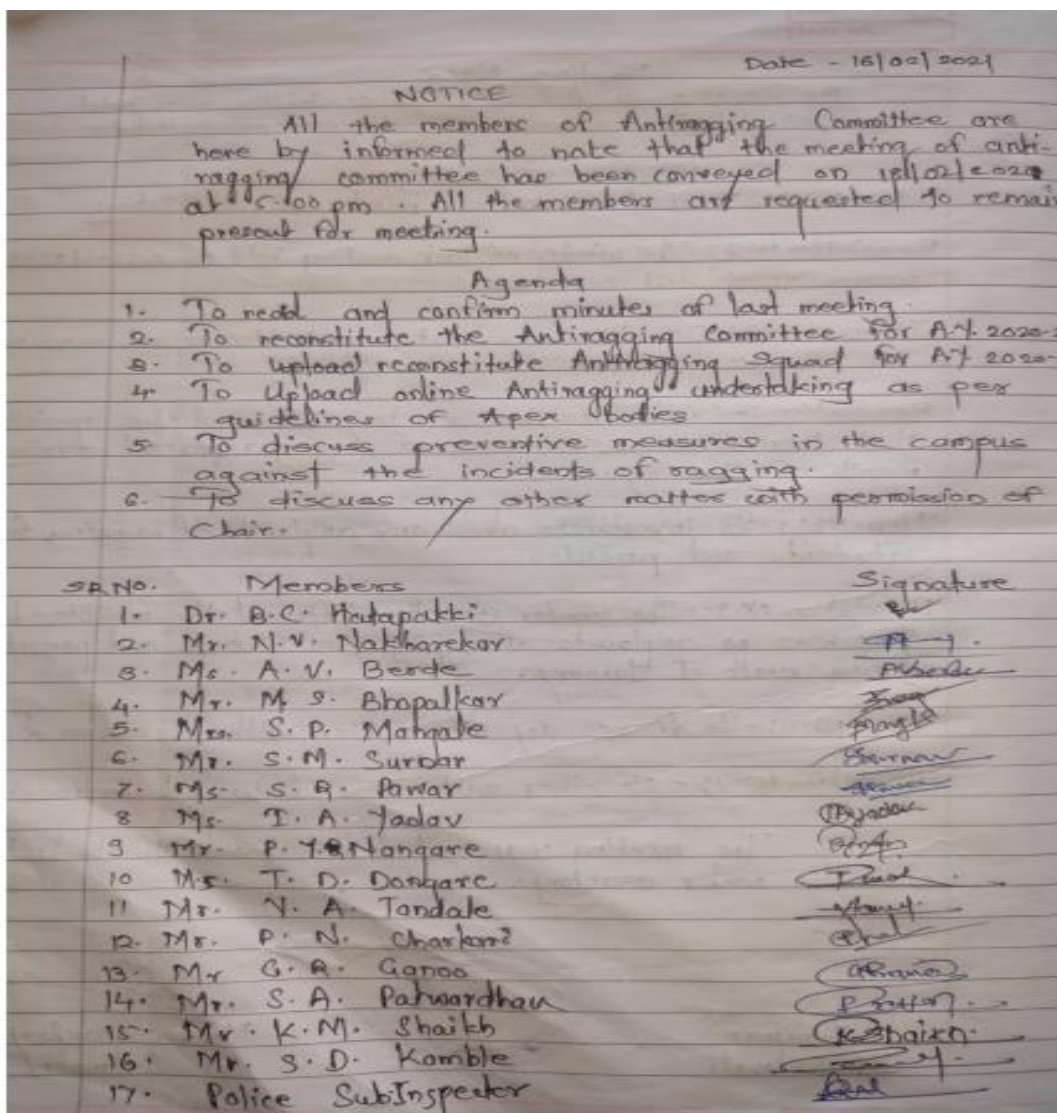 Date - 16/02/2021
NOTICE
All the members of Antiragging Committee are
here by informed to note that the meeting of anti-
ragging committee has been conveyed on 18/02/2021
at 5.00 pm. All the members are requested to remain
present for meeting.
Agenda
1. To read and confirm minutes of last meeting.
2. To reconstitute the Antiragging Committee for A.Y. 2020-
3. To upload reconstitute Antiragging Squad for A.Y 2020-
4. To Upload online Antiragging undertaking as per
guidelines of Apex bodies
5. To discuss preventive measures in the campus
against the incidents of ragging.
6. To discuss any other matter with permission of
Chair.
SR.NO. Members Signature
1. Dr. B.C. Hatapakki
2. Mr. N.V. Nakharekar
3. Ms. A.V. Berde
4. Mr. M S. Bhopalkar
5. Mrs. S.P. Mahgale
6. Mr. S.M. Survar
7. Ms. S.R. Pawar
8 Ms. T.A. Yadav
9 Mr. P.Y. Nangare
10 Ms. T.D. Dongare
11 Mr. V.A. Tandale
12. Mr. P.N. Charkari
13. Mr G.R. Ganoo
14. Mr. S.A. Patwardhan
15. Mr. K.M. Shaikh K Shaikh
16. Mr. S.D. Kamble
17. Police SubInspector